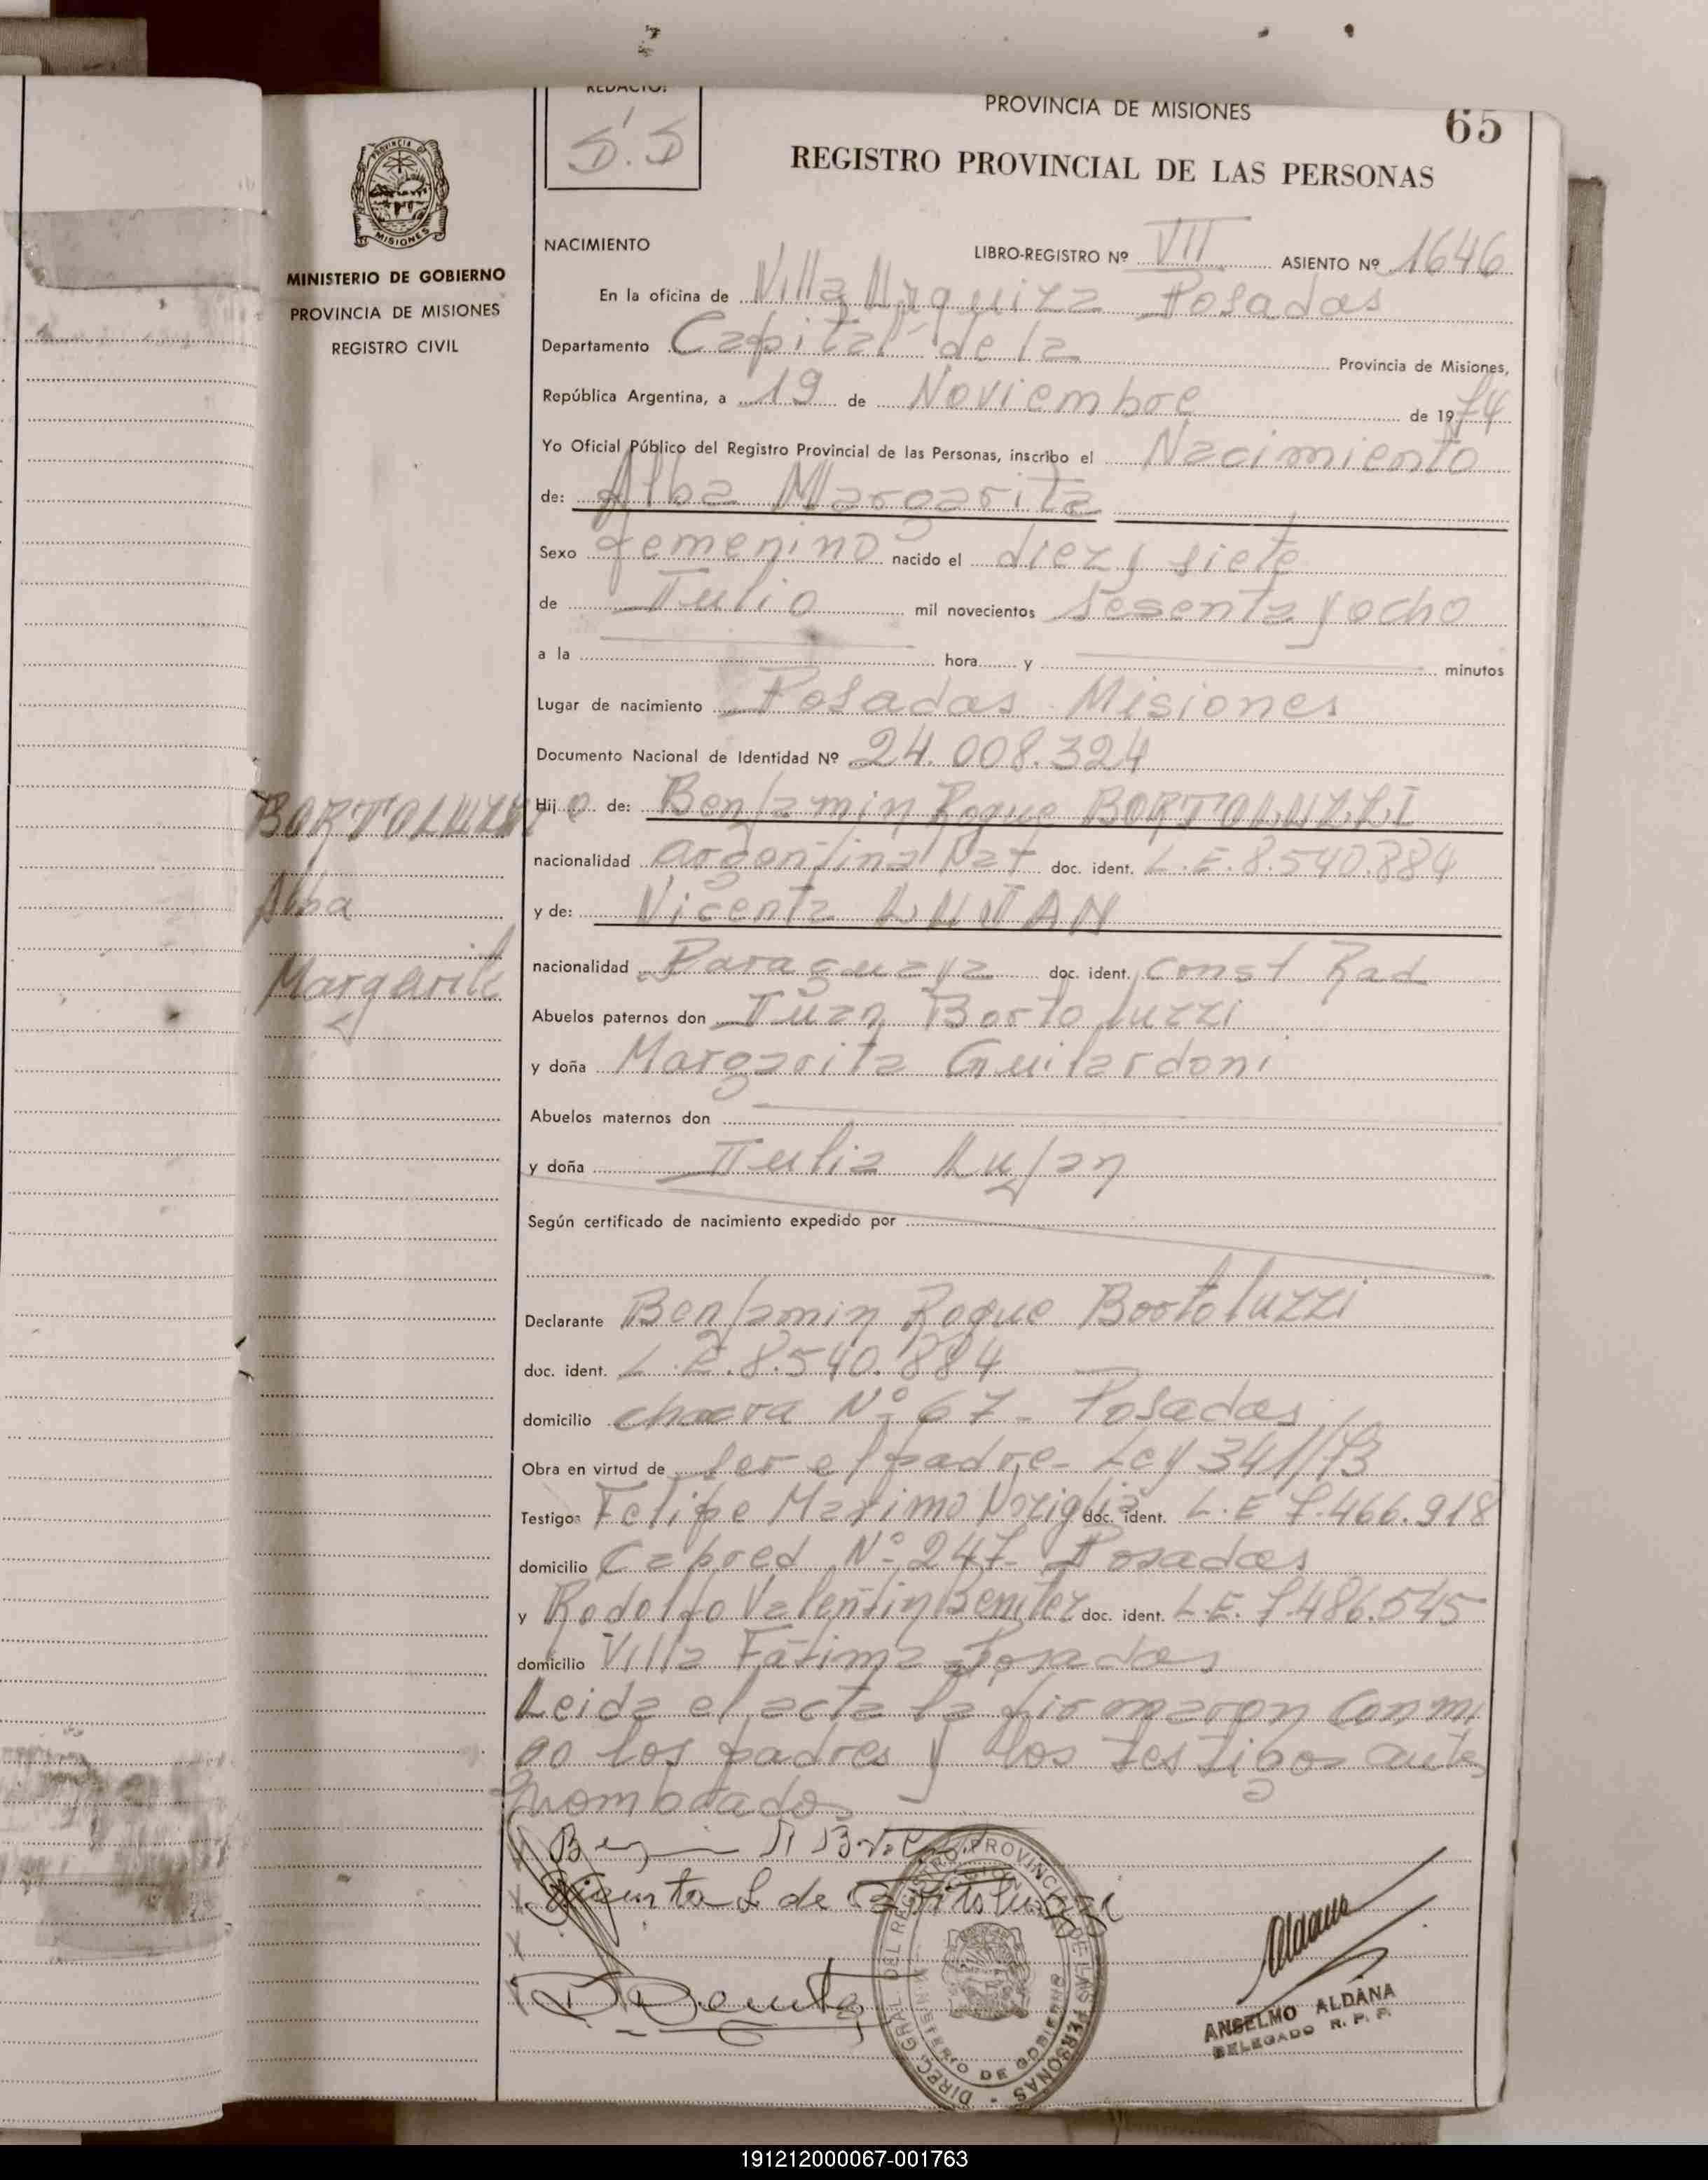 REDACTO:
S.S
PROVINCIA DE MISIONES
65
REGISTRO PROVINCIAL DE LAS PERSONAS
PROVINCIA DE MISIONES
MINISTERIO DE GOBIERNO
PROVINCIA DE MISIONES
REGISTRO CIVIL
NACIMIENTO LIBRO-REGISTRO Nº VII ASIENTO Nº 1646
En la oficina de Villa Urquiza Posadas
Departamento Capital de la Provincia de Misiones,
República Argentina, a 19 de Noviembre de 1974
Yo Oficial Público del Registro Provincial de las Personas, inscribo el Nacimiento
de: Alba Margarita
Sexo femenino nacido el diez y siete
de Julio mil novecientos sesenta y ocho
a la hora y minutos
Lugar de nacimiento Posadas Misiones
Documento Nacional de Identidad Nº 24.008.324
BORTOLUZZI
Alba
Margarita
Hijo de: Benjamin Roque BORTOLUZZI
nacionalidad argentina Nat doc. ident. L.E. 8.540.884
y de: Vicenta LUJAN
nacionalidad Paraguaya doc. ident. Const Rad
Abuelos paternos don Juan Bortoluzzi
y doña Margarita Guilardoni
Abuelos maternos don
y doña Julia Lujan
Según certificado de nacimiento expedido por
Declarante Benjamin Roque Bortoluzzi
doc. ident. L.E. 8.540.884
domicilio chacra Nº 67 - Posadas
Obra en virtud de ser el padre - Ley 341/73
Testigos Felipe Maximo doc. ident. L.E 7.466.918
domicilio Cabred Nº 247 - Posadas
y Rodolfo Valentin Benitez doc. ident. L.E. 7.486.545
domicilio Villa Fatima Posadas
Leida el acta la firmaron conmi
go los padres y los testigos ante
nombrado
Vicenta L de Bortoluzzi
DIREC. GRAL. DEL REGISTRO PROVINCIAL DE LAS PERSONAS
MINISTERIO DE GOBIERNO
Aldana
ANSELMO ALDANA
DELEGADO R. P. P.
191212000067-001763